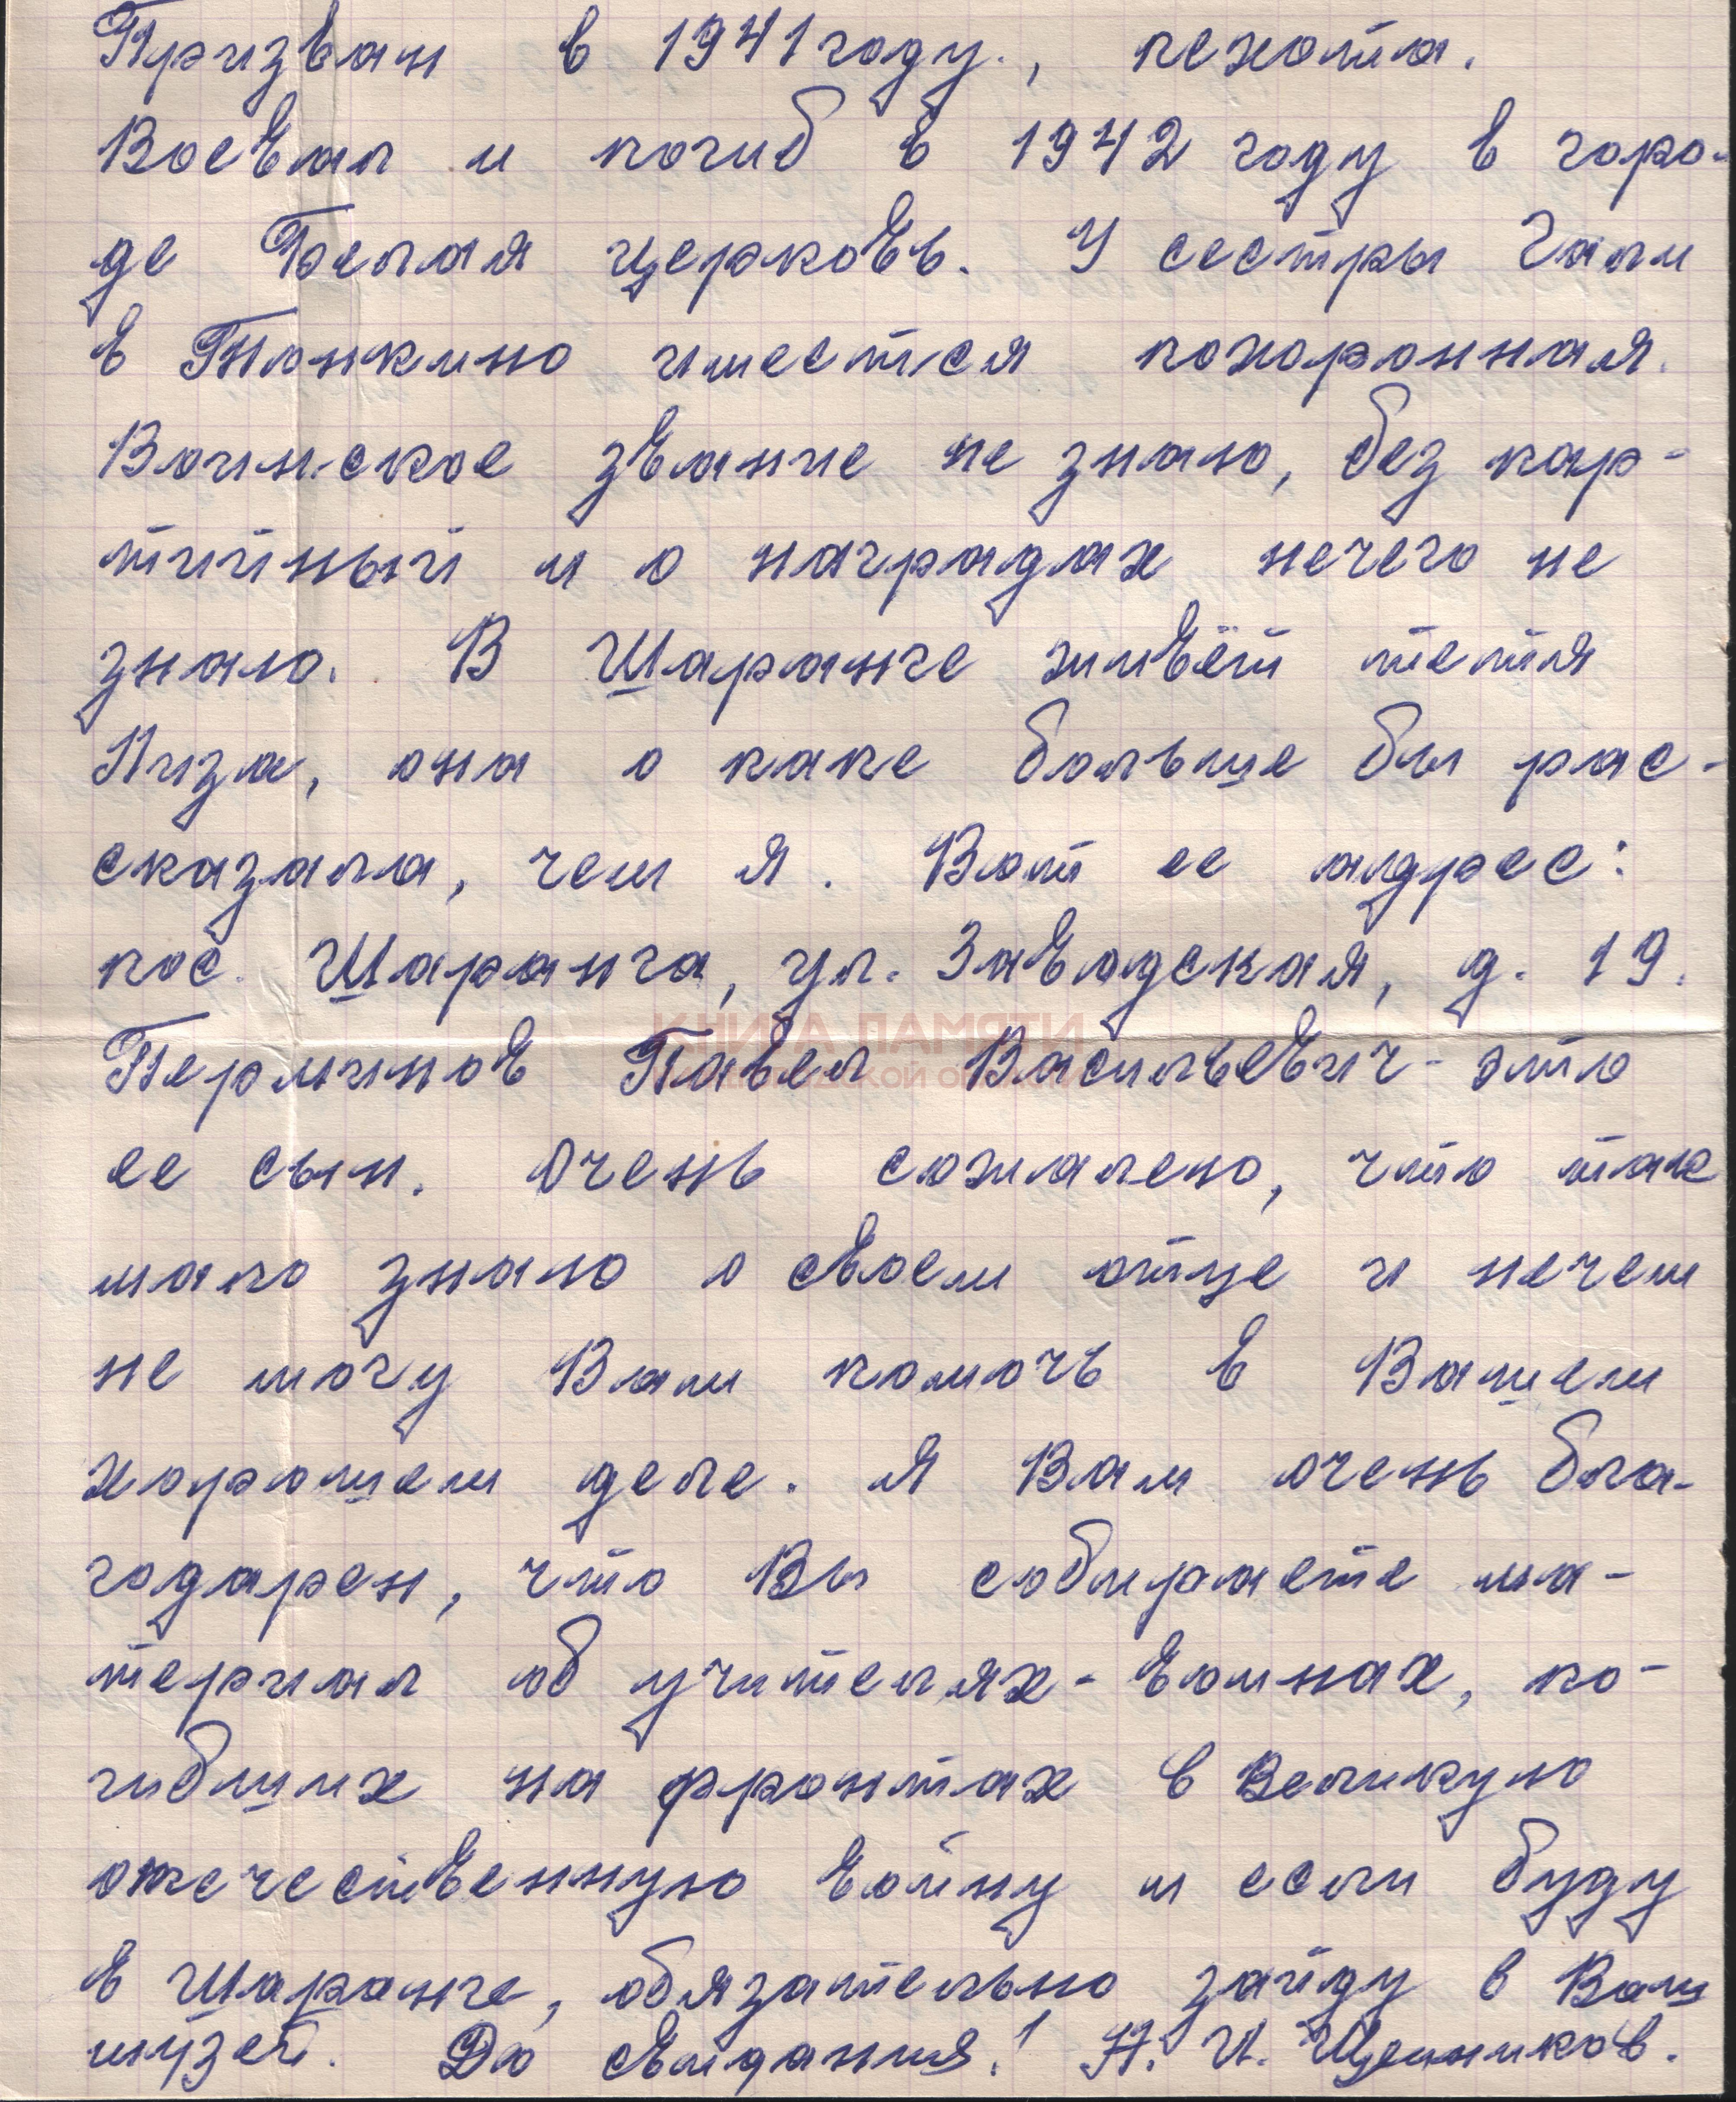 Призван в 1941 году., пехота.
Воевал и погиб в 1942 году в горо-
де Белая церковь. У сестры Гали
в Тонкино имеется похоронная.
Воинское звание не знаю, без пар-
тийный и о наградах нечего не
знаю. В Шаранге живёт тетя
Лиза, она о папе больше бы рас-
сказала, чем я. Вот ее адрес:
пос. Шаранга, ул. Заводская, д. 19.
КНИГА ПАМЯТИ
Перминов Павел Васильевич - это
ее сын. Очень сожалею, что так
мало знаю о своем отце и нечем
не могу Вам помочь в Вашем
хорошем деле. Я Вам очень бла-
годарен, что Вы собираете ма-
териал об учителях - воинах, по-
гибших на фронтах в Великую
отечественную войну и если буду
в Шаранге, обязательно зайду в Ваш
музей. До свидания! Н. И.